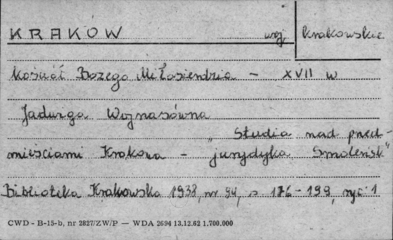 KRAKOW woj. krakowskie
Kościół Bożego Miłosierdzia - XVII w
Jadwiga Wojnasówna
"Studia nad przed-
mieściami Krakowa - jurydyka Smoleńsk"
Biblioteka Krakowska 1938, nr 94, s 176-199, ryc. 1
CWD - B-15-b, nr 2827/ZW/P — WDA 2604 13.12.62 1.700.000